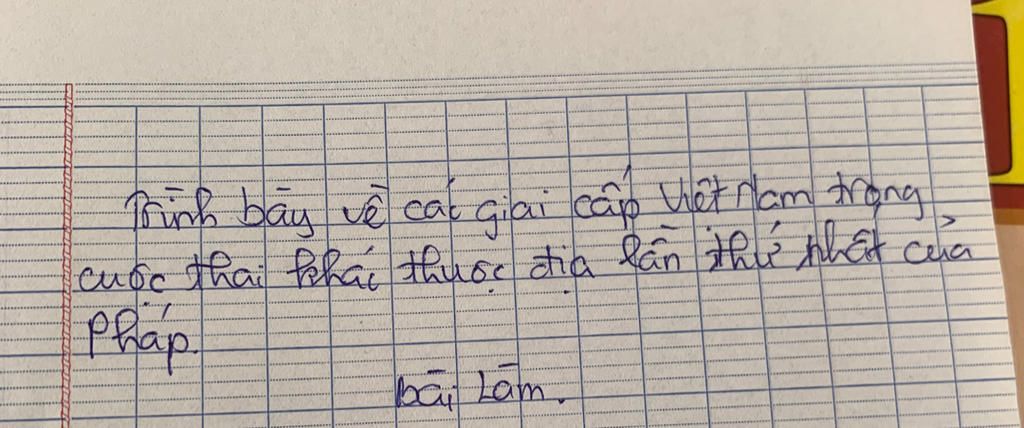 Trình bày về các giai cấp Việt Nam trong
cuộc thai khác thuộc địa lần thứ nhất của
Pháp.
bài Làm.